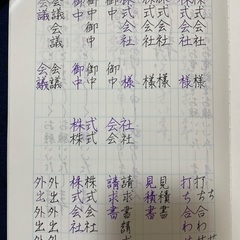 株式会社様
株式会社様
株式会社様
株式会社様
御中御中
御中御中
御中御中
会議会議会議
会議会議会議
株式 会社
株式会社
打ち合わせ
打ち合わせ
見積書
見積書
請求書請
請求書
株式会社
株式会社
外出外出
外出外出